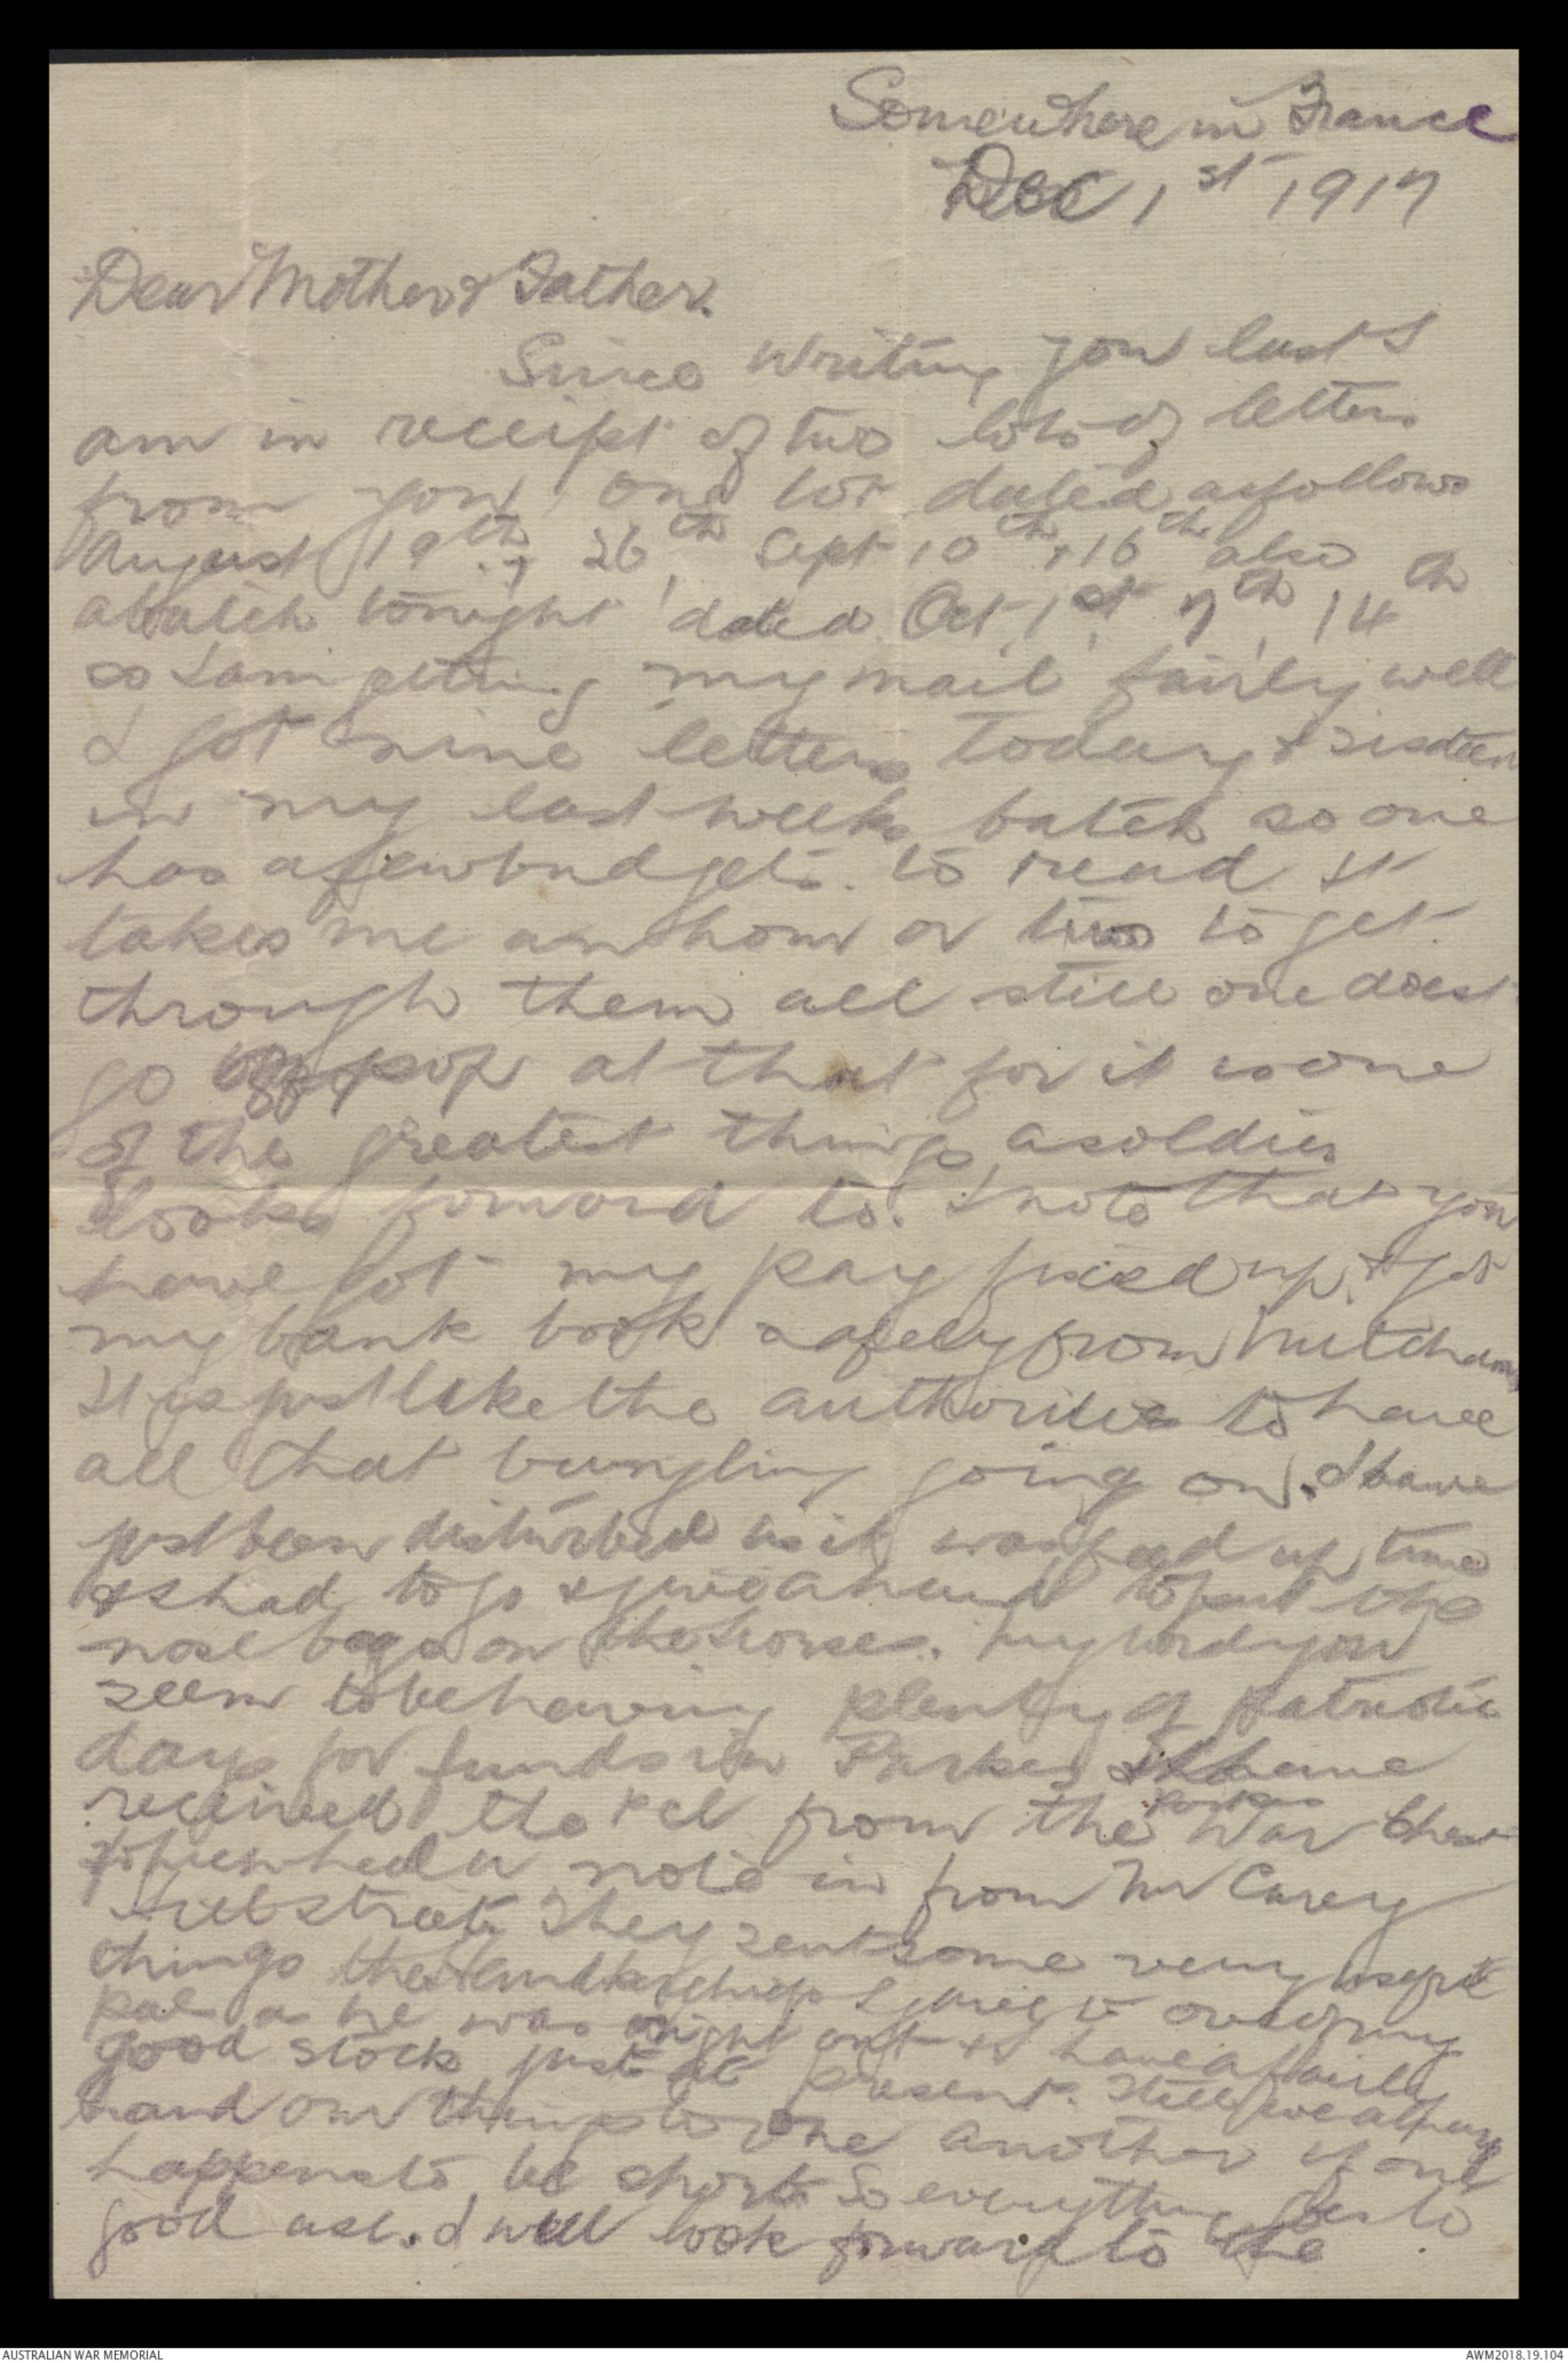 Somewhere in France
Dec 1st 1917
Dear Mother & Father.
Since writing you last I
am in receipt of two lots of letters
from you, one lot dated as follows
August 19th, 26th, Sept 10th, 16th also
a batch tonight dated Oct 1st, 7th, 14th
so I am getting my mail fairly well
I got nine letters today & sixteen
in my last weeks batch so one
has a few budgets to read It
takes me an hour or two to get
through them all still one doest
go off pop at that for it is one
of the greatest things a soldier
looks forward to. I note that you
have got my pay fixed up & got
my bank book safely from
It is just like the authorities to have
all that bungling going on. I have
just been disturbed as it was feed up time
& I had to go & give a hand to put the
nose bags on the horses. My word you
seem to be having plenty of patriotic
days for funds in Parkes I have
received the pcl from the Parkes War Chest
had a note in from Mr Carey
They sent some very useful
things the handkerchiefs I gave to one of my
pal as he was right out & I have a fairly
good stock just at present. Still we always
hand our things to one another if one
happens to be short So everything goes to
good use. I will look forward to the
AUSTRALIAN WAR MEMORIAL
AWM2018.19.104